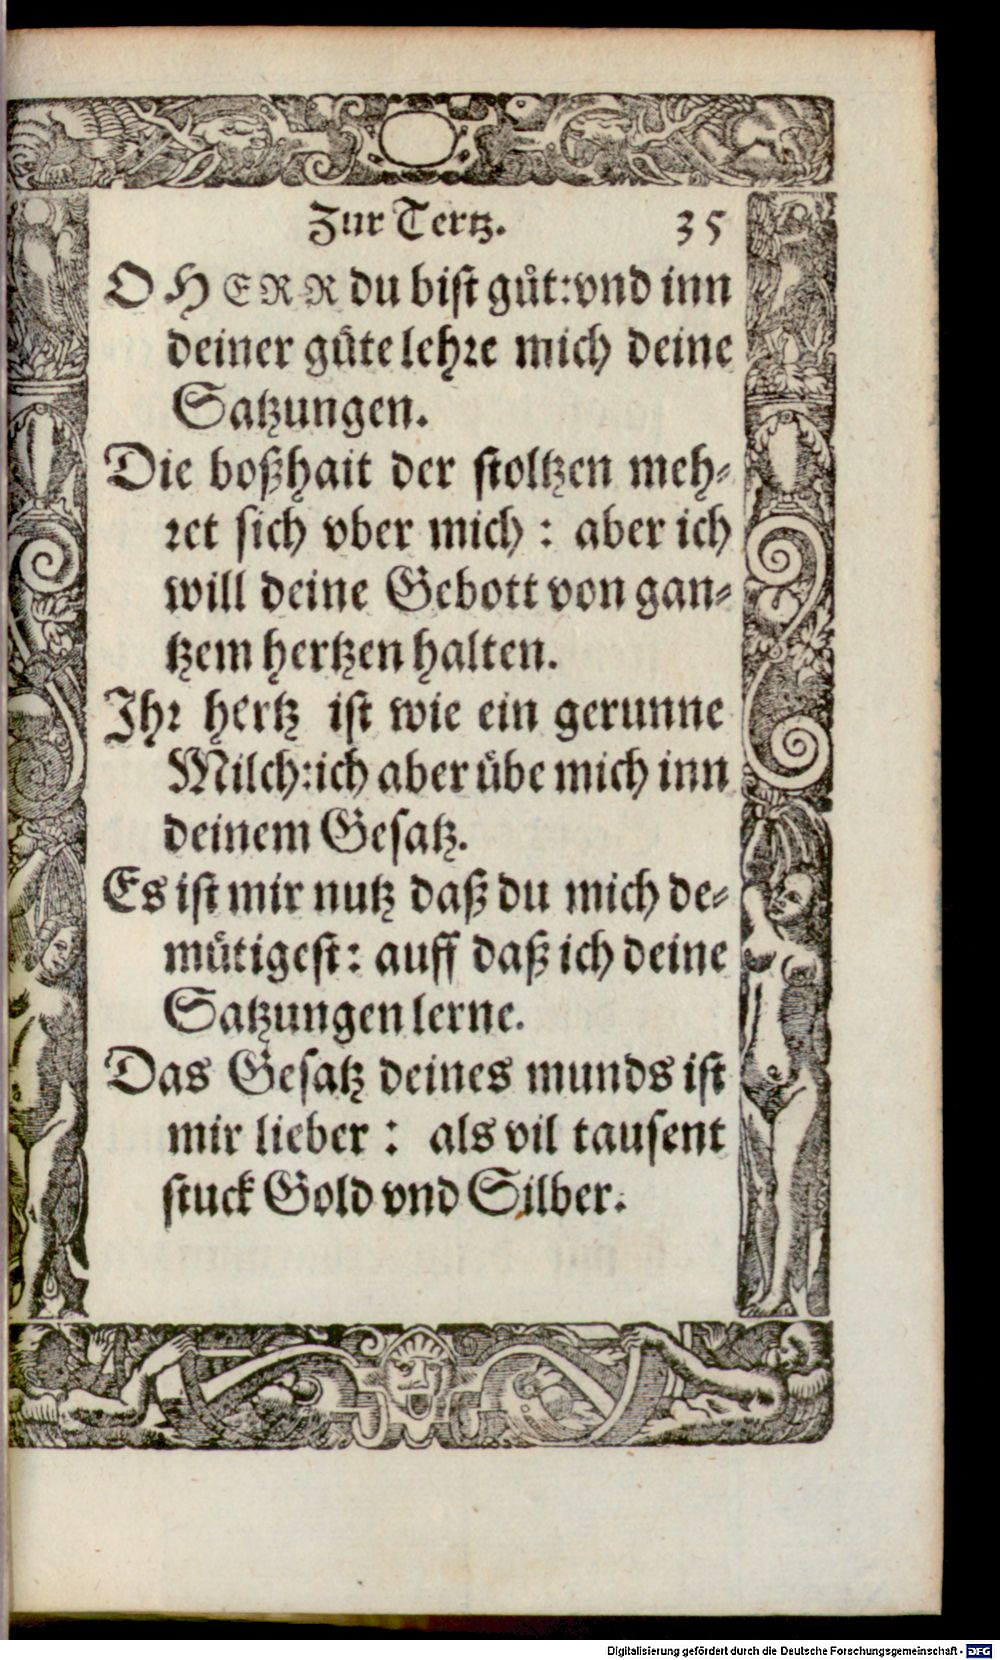 Zur Tertz. 35
O HERR du bist gůt: vnd inn
deiner gůte lehre mich deine
Satzungen.
Die boßhait der stoltzen meh-
ret sich vber mich : aber ich
will deine Gebott von gan-
tzem hertzen halten.
Ihr hertz ist wie ein gerunne
Milch: ich aber ůbe mich inn
deinem Gesatz.
Es ist mir nutz daß du mich de-
můtigest: auff daß ich deine
Satzungen lerne.
Das Gesatz deines munds ist
mir lieber : als vil tausent
stuck Gold vnd Silber.
Digitalisierung gefördert durch die Deutsche Forschungsgemeinschaft - DFG